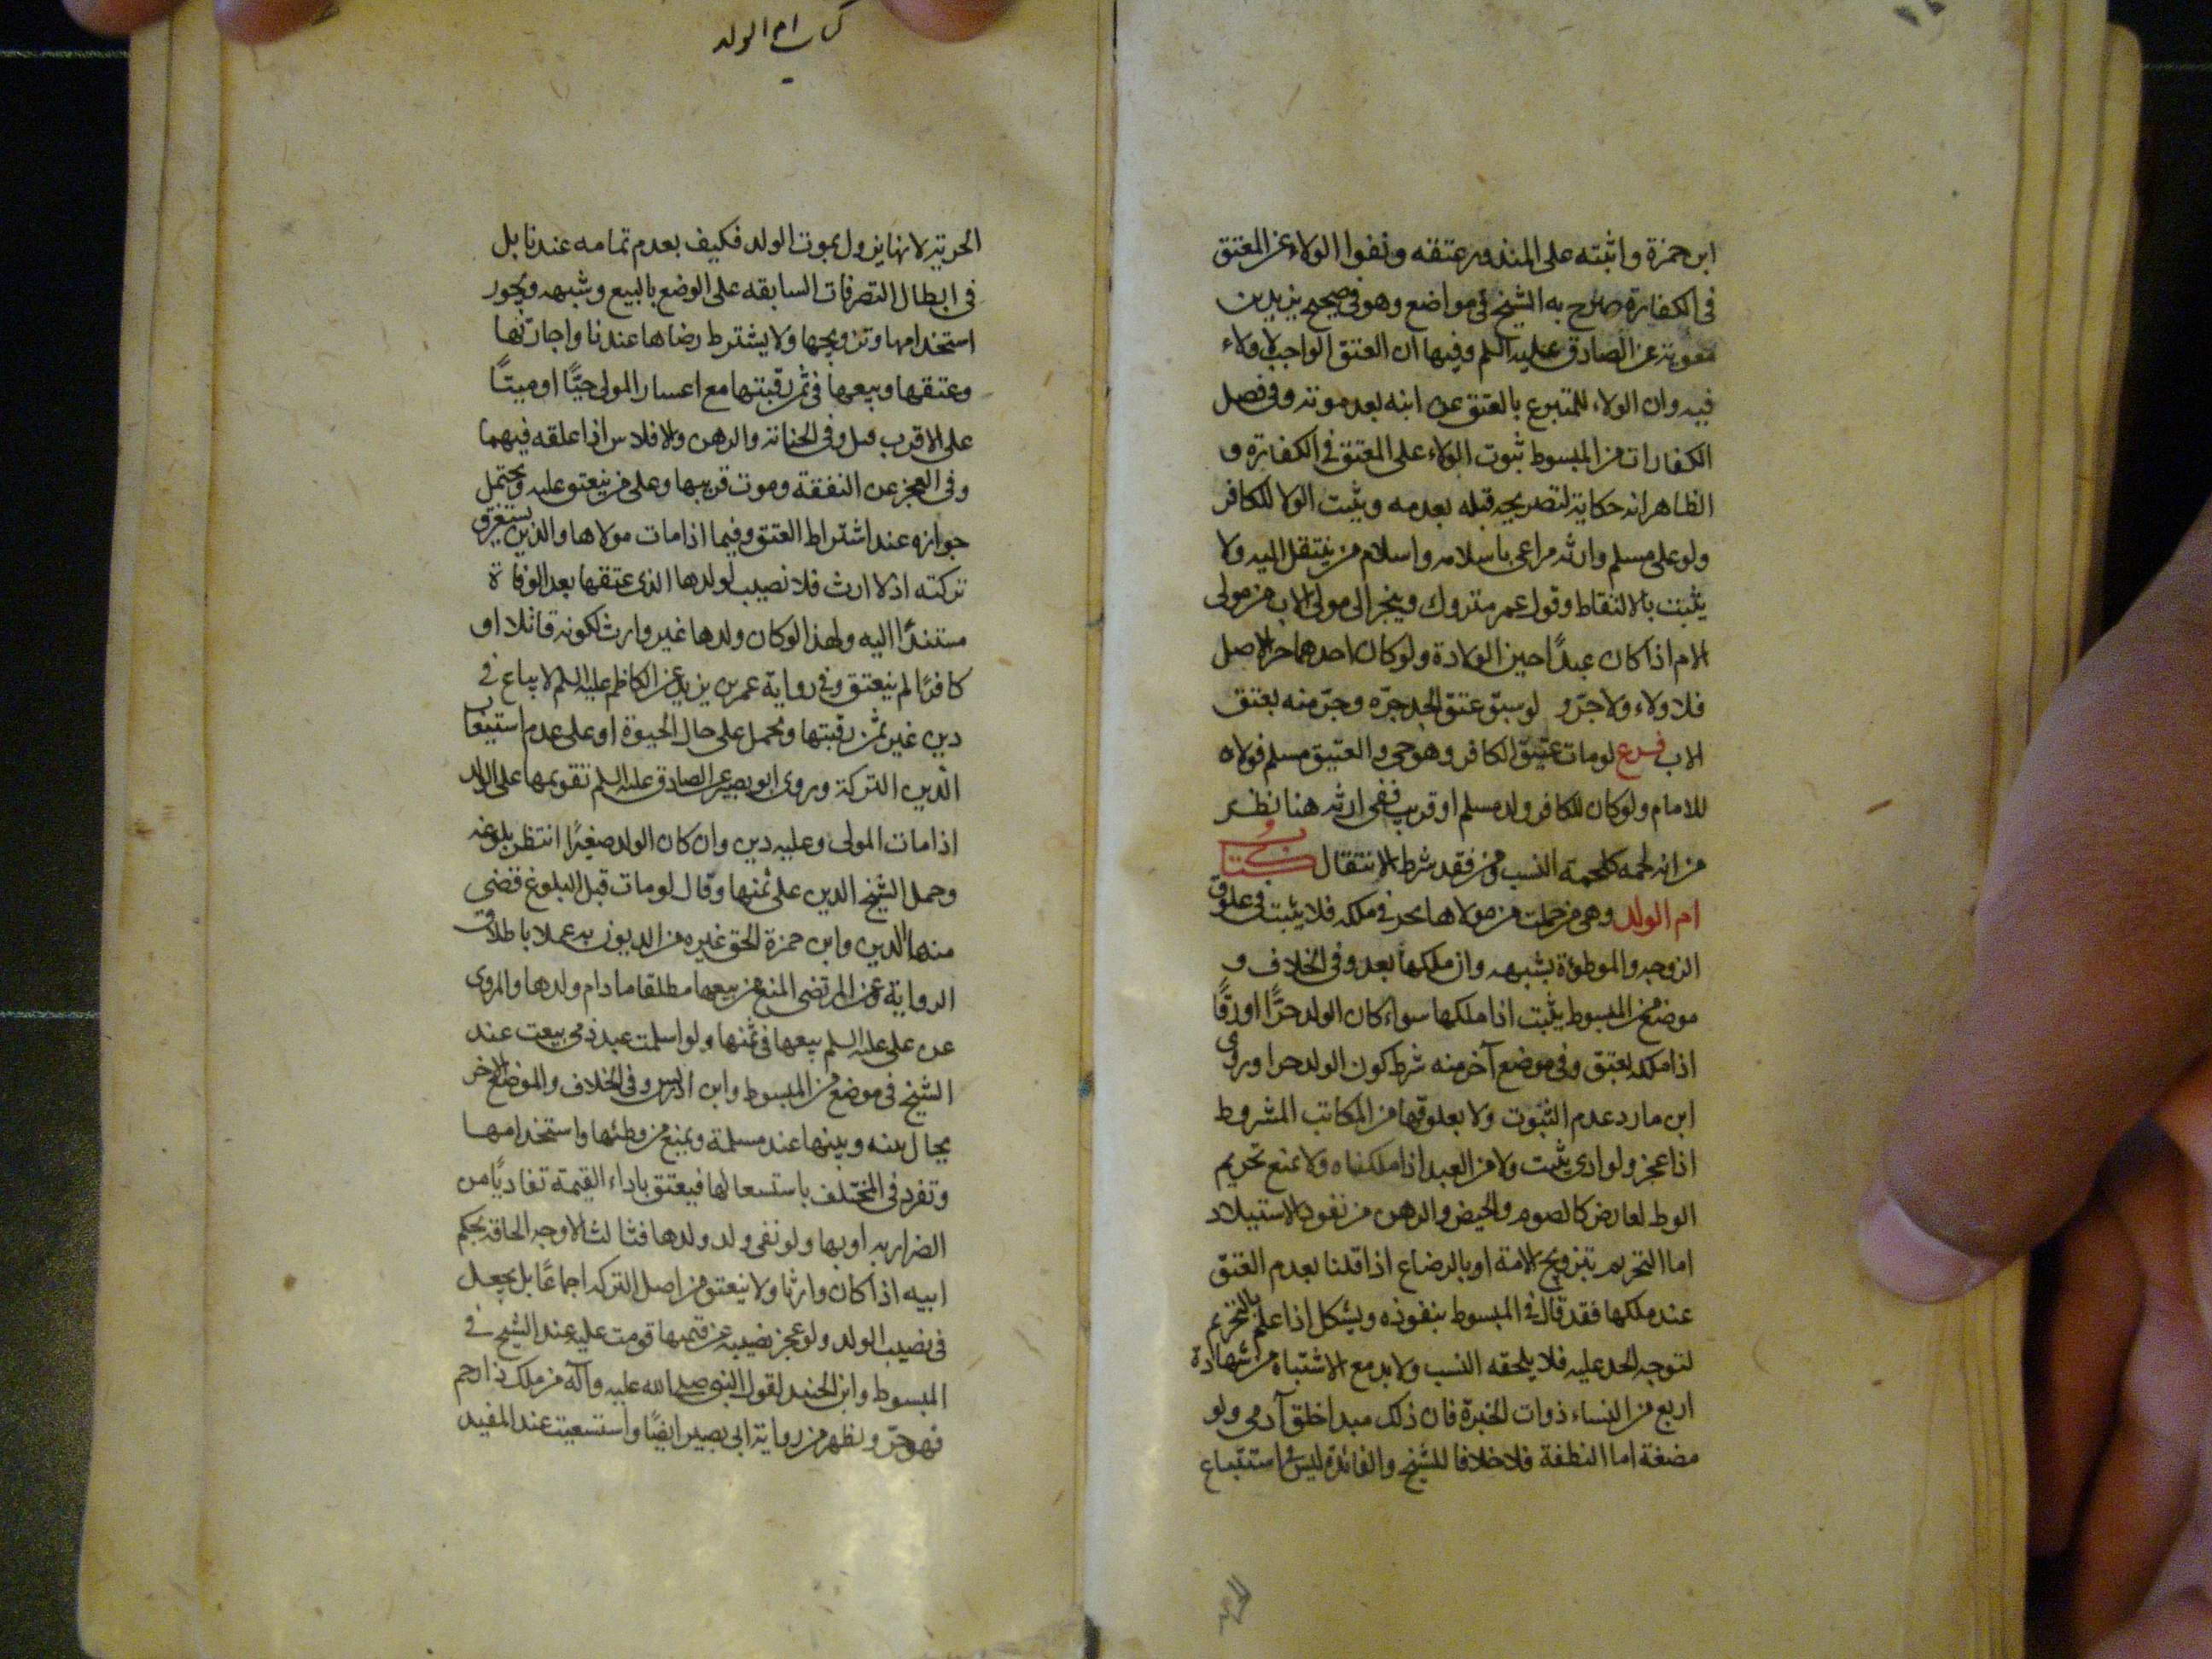 ابن حمزة واثبته على المنذور عتقه ونفوا الولاء عن المعتق
فى الكفارة صرح به الشيخ فى مواضع وهو فى صحيح بريد بن
معوية عن الصادق عليه السلم وفيها ان العتق الواجب لا ولاء
فيه وان الولاء للمتبرع بالعتق عن ابيه بعد موته وفى فصل
الكفارات من المبسوط ثبوت الولاء على المعتق فى الكفارة و
الظاهر انه حكاية لتصريحه قبله بعدمه ويثبت الولا للكافر
ولو على مسلم وارثه مراعى باسلامه واسلام من ينتقل اليه ولا
يثبت بالالتقاط وقول عمر متروك وينجر الى مولى الاب من مولى
الام اذا كان عبدًا حين الولادة ولو كان احدهما حر الاصل
فلا ولاء ولا جرّ و لو سبق عتق الجد جرّه وجرّ منه بعتق
الاب فرع لو مات عتيق الكافر وهو حى والعتيق مسلم فولاه
للامام ولو كان للكافر ولد مسلم او قريب ففى ارثه هنا نظر
من انه لحمه كلحمة النسب ومن فقد شرط الانتقال كتاب
ام الولد وهى من حملت من مولاها بحر فى ملكه فلا يثبت فى علوق
الزوجه والموطؤة بشبهه وان ملكها بعد وفى الخلاف و
موضع من المبسوط يثبت اذا ملكها سواء كان الولد حرًّا او رقًّا
اذا ملكه بعتق وفى موضع آخر منه شرط كون الولد حرا وروى
ابن مارد عدم الثبوت ولا بعلوقها من المكاتب المشروط
اذا عجز ولو ادى يثبت ولا من العبد اذا ملكناه ولا يمنع تحريم
الوط لعارض كالصوم والحيض والرهن من نفوذ الاستيلاد
اما التحريم بتزويج الامة او بالرضاع اذا قلنا بعدم العتق
عند ملكها فقد قال فى المبسوط بنفوذه ويشكل اذا علم بالتحريم
لتوجه الحد عليه فلا يلحقه النسب ولا بد مع الاشتباه من شهادة
اربع من النساء ذوات الخبرة فان ذلك مبدا خلق آدمى ولو
مضغة اما النطفة فلا خلافا للشيخ والفائدة ليس فى استتباع
كتاب ام الولد
الحرية لانها يزول بموت الولد فكيف بعدم تمامه عندنا بل
فى ابطال التصرفات السابقه على الوضع بالبيع وشبهه ويجوز
استخدامها وتزويجها ولا يشترط رضاها عندنا واجارتها
وعتقها وبيعها فى ثمن رقبتها مع اعسار المولى حيًّا او ميتًا
على الاقرب قيل وفى الجناية والرهن والافلاس اذا علقه فيهما
وفى العجز عن النفقة وموت قريبها وعلى من ينعتق عليه ويحتمل
جوازه عند اشتراط العتق وفيما اذا مات مولاها والدين يستغرق
تركته اذ لا ارث فلا نصيب لولدها الذى عتقها بعد الوفاة
مستندًا اليه ولهذا لو كان ولدها غير وارث لكونه قاتلا او
كافرًا لم ينعتق وفى رواية عمر بن يزيد عن الكاظم عليه السلم لا يباع فى
دين غير ثمن رقبتها ويحمل على حال الحيوة او على عدم استيعاب
الدين التركة وروى ابو بصير عن الصادق عليه السلم تقويمها على الولد
اذا مات المولى وعليه دين وان كان الولد صغيرًا انتظر بلوغه
وحمل الشيخ الدين على ثمنها وقال لو مات قبل البلوغ قضى
منها الدين وابن حمزة الحق غيره من الديون به عملا باطلاق
الرواية وعن المرتضى المنع من بيعها مطلقا ما دام ولدها والمروى
عن على عليه السلم بيعها فى ثمنها ولو اسلمت عبد ذمى بيعت عند
الشيخ فى موضع من المبسوط وابن ادريس وفى الخلاف والموضع الاخر
يحال بينه وبينها عند مسلمة ويمنع من وطئها واستخدامها
وتفرد فى المختلف باستسعالها فيعتق باداء القيمة تفاديًا من
الضرار به او بها ولو نفى ولد ولدها فثالث الاوجه الحاقه بحكم
ابيه اذا كان وارثا ولا ينعتق من اصل التركه اجماعًا بل يجعل
فى نصيب الولد ولو عجز نصيبه عن قيمتها قومت عليه عند الشيخ فى
المبسوط وابن الجنيد لقول النبى صلى الله عليه وآله من ملك ذا رحم
فهو حرّ ويظهر من رواية ابى بصير ايضًا واستسعيت عند المفيد